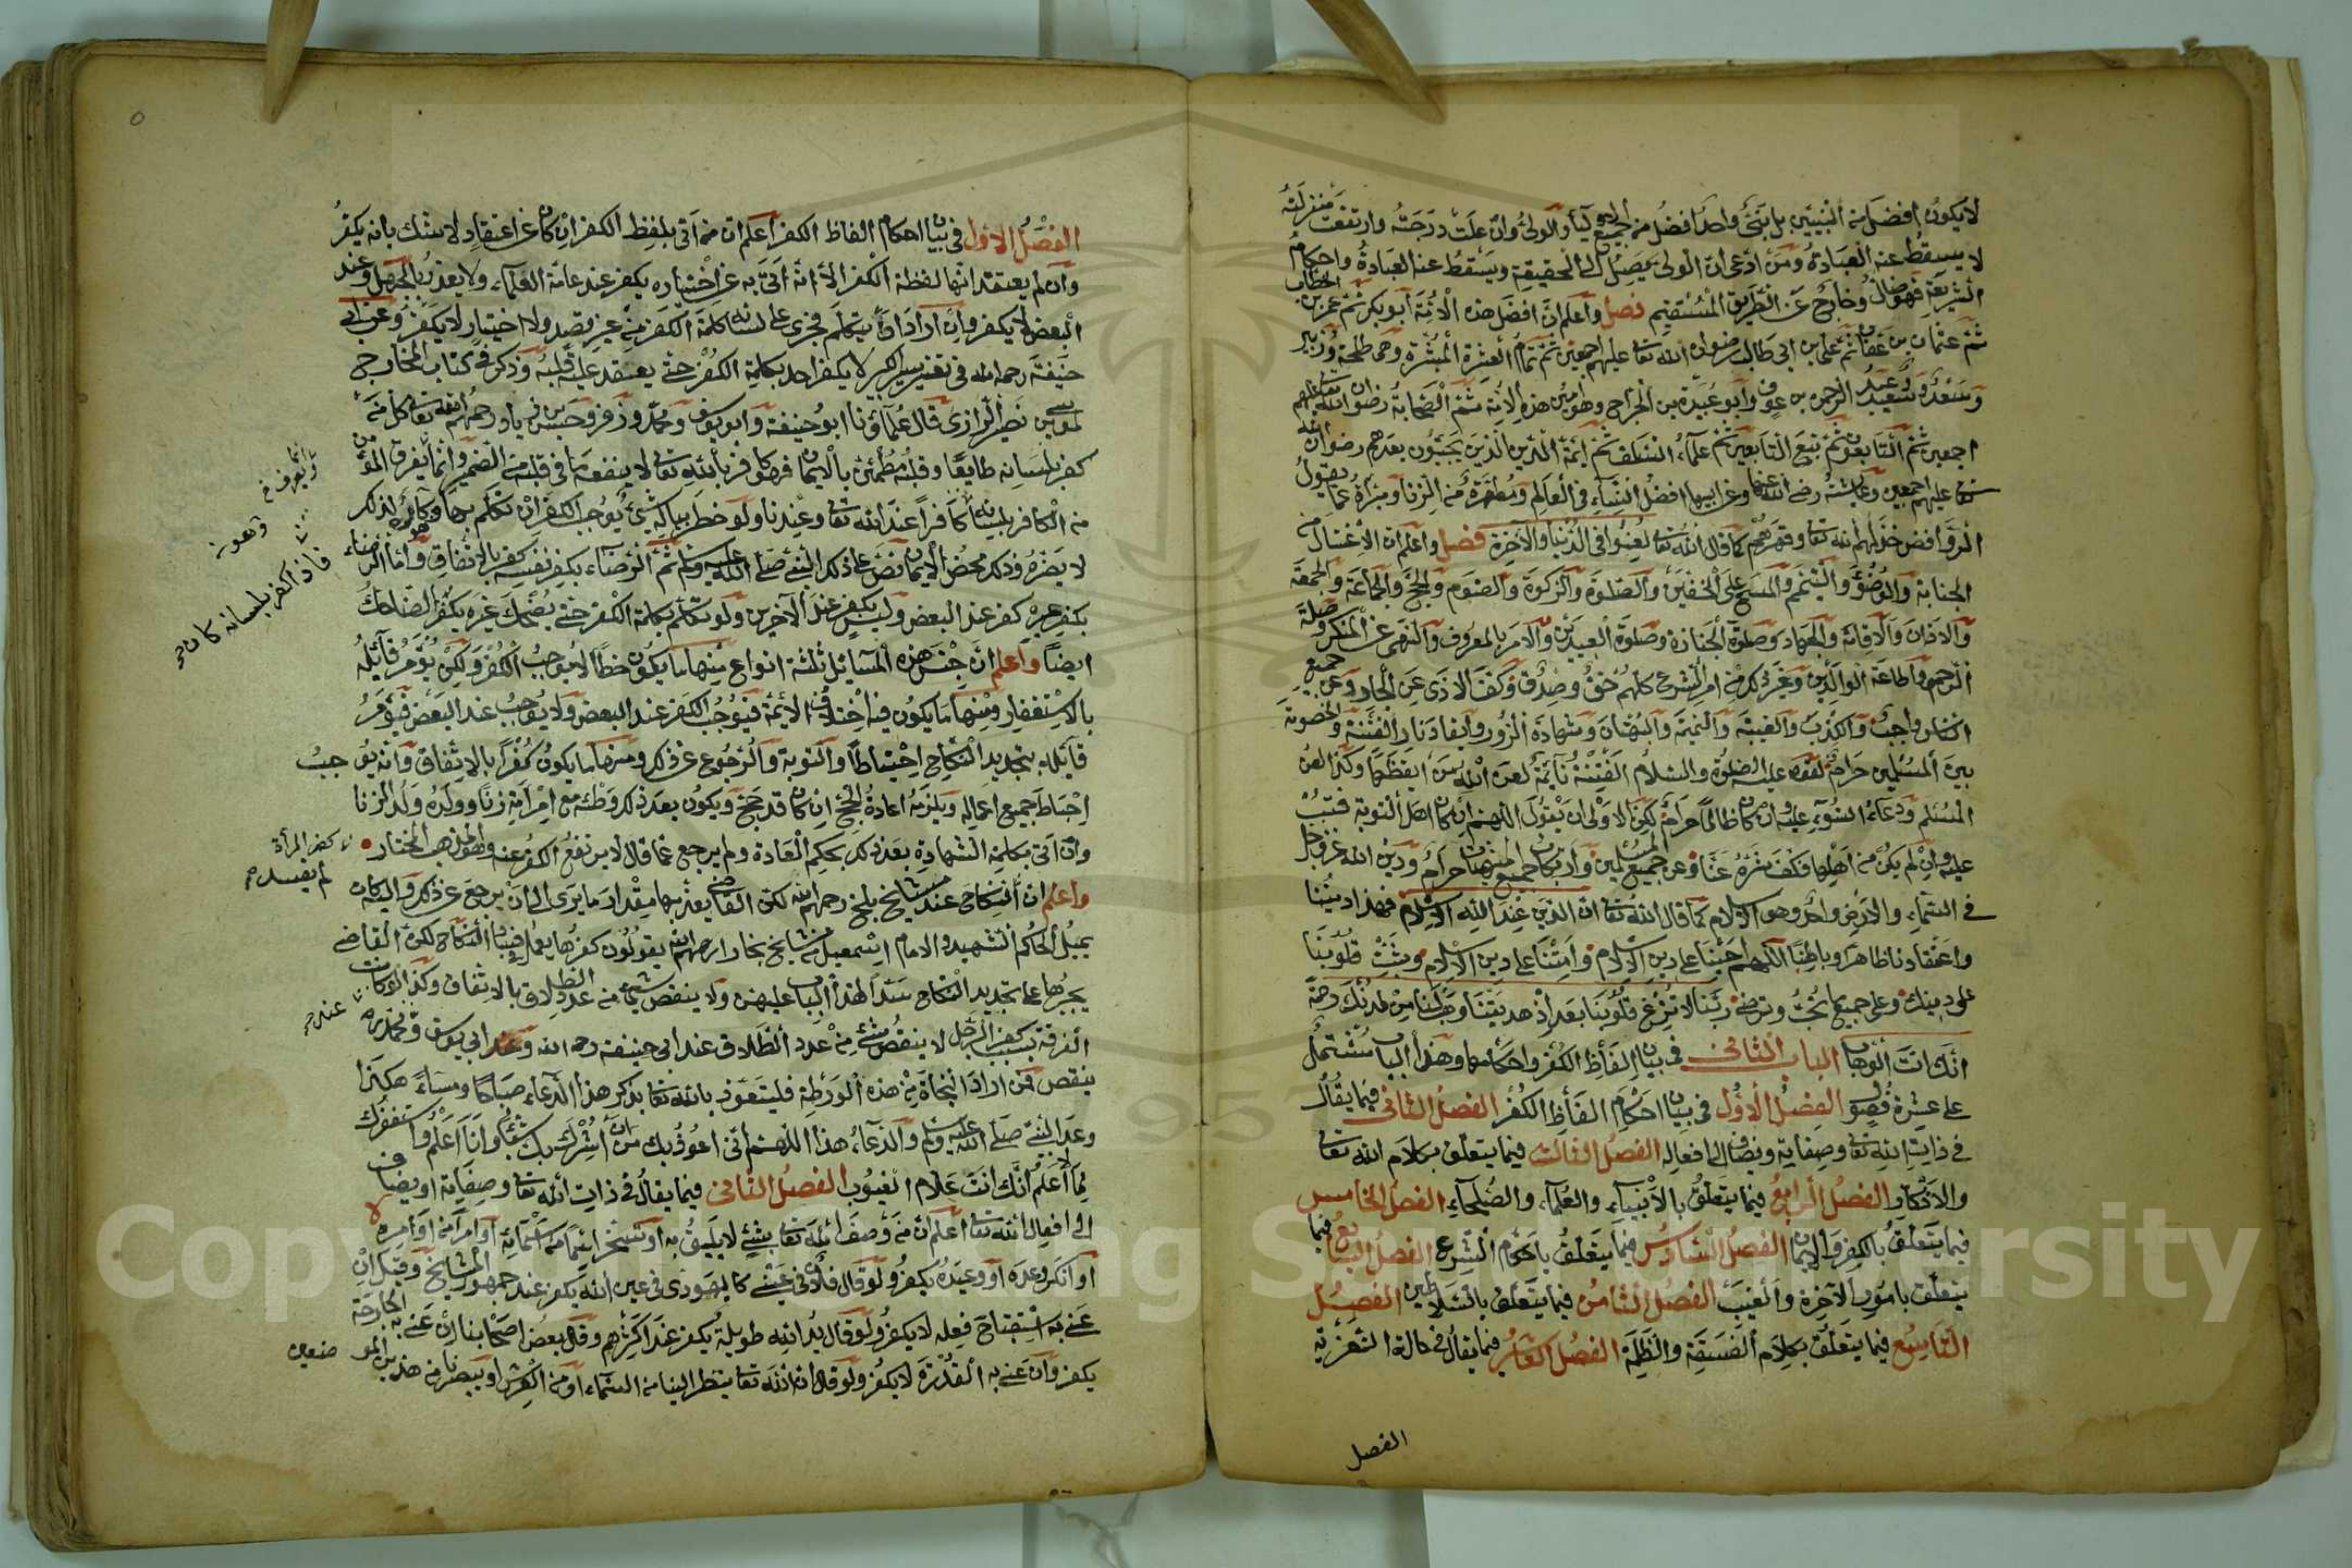 لا يكون افضل من النبيين بل نبى واحد افضل من جميع الاولياء والولى وان علت درجته وارتفعت منزلته
لا يسقط عنه العبادة ومن ادعى ان الولى يصل الى الحقيقة ويسقط عنه العبادة واحكام
الشريعة فهو ضال وخارج عن الطريق المستقيم فصل واعلم ان افضل هذه الامة ابو بكر ثم عمر بن الخطاب
ثم عثمان بن عفان ثم على بن ابى طالب رضوان الله تعا عليهم اجمعين ثم تمام العشرة المبشرة وهى طلحة وزبير
وسعد وسعيد وعبد الرحمن بن عوف وابو عبيدة بن الجراح وهو امين هذه الامة ثم الصحابة رضوان الله تعا عليهم
اجمعين ثم التابعون ثم تبع التابعين ثم علماء السلف ثم ائمة الدين الذين يجيئون بعدهم رضوان الله
عليهم اجمعين وعايشة رضى الله عنها وعن ابيها افضل النساء فى العالم ومطهرة من الزنا ومبرأة عما يقول
الروافض خذلهم الله تعا وقهرهم كما قال الله تعا لعنوا فى الدنيا والآخرة فصل واعلم ان الاغتسال من
الجنابة والوضوء والتيمم والمسح على الخفين والصلوة والزكوة والصوم والحج والجماعة والجمعة
والاذان والاقامة والجهاد وصلوة الجنازة وصلوة العيدين والامر بالمعروف والنهى عن المنكر وصلة
الرحم واطاعة الوالدين وغير ذلك من امر الشرع كلهم حق وصدق وكف الاذى عن الجار وعن جميع
الناس واجب والكذب والغيبة والنميمة والبهتان وشهادة الزور وايقاد نار الفتنة والخصومة
بين المسلمين حرام لقوله عليه الصلوة والسلام الفتنة نائمة لعن الله من ايقظها وكذا لعن
المسلم ودعاء السوء عليه وان كان ظالما حرام لكن الاولى ان يقول اللهم ان كان اهل التوبة فتب
عليه وان لم يكن من اهلها فكف شره عنا وعن جميع المسلمين وارتكاب جميع المنهيات حرام ودين الله عز وجل
فى السماء والارض واحد وهو الاسلام كما قال الله تعا ان الدين عند الله الاسلام فهذا ديننا
واعتقادنا ظاهرا وباطنا اللهم احينا على دين الاسلام وامتنا على دين الاسلام وثبت قلوبنا
على دينك وعلى جميع ما تحب وترضى ربنا لا تزغ قلوبنا بعد اذ هديتنا وهب لنا من لدنك رحمة
انك انت الوهاب الباب الثانى فى بيان الفاظ الكفر واحكامها وهذا الباب مشتمل
على عشرة فصول الفصل الاول فى بيان احكام الفاظ الكفر الفصل الثانى فيما يقال
فى ذات الله تعا وصفاته ويضاف الى افعاله الفصل الثالث فيما يتعلق بكلام الله تعا
والاذكار الفصل الرابع فيما يتعلق بالانبياء والعلماء والصلحاء الفصل الخامس
فيما يتعلق بالكفر والايمان الفصل السادس فيما يتعلق باحكام الشرع الفصل السابع فيما
يتعلق بامور الآخرة والغيب الفصل الثامن فيما يتعلق بالسلاطين الفصل
التاسع فيما يتعلق بكلام الفسقة والظلمة الفصل العاشر فيما يقال فى حالة التعزية
الفصل
٥
الفصل الاول فى بيان احكام الفاظ الكفر اعلم ان من اتى بلفظ الكفر ان كان عن اعتقاد لا شك بانه يكفر
وان لم يعتقد انها لفظة الكفر الا انه اتى به عن اختياره يكفر عند عامة العلماء ولا يعذر بالجهل وعند
البعض لا يكفر وان اراد ان يتكلم فجرى على لسانه كلمة الكفر من غير قصد ولا اختيار لا يكفر وعن ابى
حنيفة رحمه الله فى تفسير سير الكبير لا يكفر احد بكلمة الكفر حتى يعتقد عليه قلبه وذكر فى كتاب المخارج
لموسى بن نصير الرازى قال علماؤنا ابو حنيفة وابو يوسف ومحمد وزفر وحسن بن زياد رحمهم الله تعا كل من
كفر بلسانه طايعا وقلبه مطمئن بالايمان فهو كافر بالله تعا لا ينفعه ما فى قلبه من الضمير وانما يفرق المؤمن
من الكافر بلسانه كان كافرا عند الله تعا وعندنا ولو خطر بباله شىء يوجب الكفر ان تكلم بها وهو كاره لذلك
لا يضره وذلك محض الايمان نص على ذلك النبى صلى الله عليه وسلم ثم الرضاء بكفر نفسه كفر بالاتفاق واما الرضاء
بكفر غيره كفر عند البعض وليس بكفر عند الآخرين ولو تكلم بكلمة الكفر حتى يضحك غيره يكفر الضاحك
ايضا واعلم ان جنس هذه المسائل ثلثة انواع منها ما يكون خطأ لا يوجب الكفر ولكن يؤمر قائله
بالاستغفار ومنها ما يكون فيه اختلاف الائمة فيوجب الكفر عند البعض ولا يوجب عند البعض فيؤمر
قايله بتجديد النكاح احتياطا والتوبة والرجوع عن ذلك ومنها ما يكون كفرا بالاتفاق وانه يوجب
احباط جميع اعماله ويلزمه اعادة الحج ان كان قد حج ويكون بعد ذلك وطئه مع امرأته زنا وولده ولد الزنا
وان اتى بكلمة الشهادة بعد ذلك بحكم العادة ولم يرجع عما قال لا يرتفع الكفر عنه وهو المذهب المختار
واعلم ان النكاح عند مشايخ بلخ رحمهم الله لكن القاضى يعذبها مقدار ما يرى الى ان يرجع عن ذلك واليه كان
يميل الحاكم الشهيد والامام اسمعيل من مشايخ بخارا رحمهم الله يقولون كفرها يعمل فى فساد النكاح لكن القاضى
يجبرها على تجديد النكاح سدا لهذا الباب عليهن ولا ينقص شيئا من عدد الطلاق بالاتفاق وكذا لو كانت
الفرقة بسبب كفر الرجل لا ينقص شىء من عدد الطلاق عند ابى حنيفة رحمه الله وعند ابى يوسف ومحمد
ينقص فمن اراد النجاة من هذه الورطة فليتعوذ بالله تعا بذكر هذا الدعاء صباحا ومساء هكذا
وعد النبى صلى الله عليه وسلم والدعاء هذا اللهم انى اعوذ بك من ان اشرك بك شيئا وانا اعلم واستغفرك
لما لا اعلم انك انت علام الغيوب الفصل الثانى فيما يقال فى ذات الله تعا وصفاته او يضاف
الى افعال الله تعا اعلم ان من وصف الله تعا بشىء لا يليق به او تسخر اسما من اسمائه او امرا من اوامره
او انكر وعده او وعيده يكفر ولو قال فلان فى عينى كاليهودى فى عين الله يكفر عند جمهور المشايخ وقيل ان
عنى به استقباح فعله لا يكفر ولو قال يد الله طويلة يكفر عند اكثرهم وقال بعض اصحابنا ان عنى به الجارحة
يكفر وان عنى به القدرة لا يكفر ولو قال ان الله تعا ينظر الينا من السماء او من العرش او يبصرنا من هذين الموضعين
فاذا كفر بلسانه كان صح
كفر المرأة
لم يفسد صح
عند صح
Copyright © King Saud University
1957